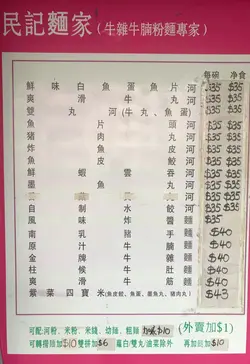 民記麵家(牛雜牛腩粉麵專家)
每碗 净食
鮮味白魚蛋魚片河 $35 $35
爽滑牛丸河 $35 $35
雙丸河(牛丸、魚蛋) $35 $35
魚片頭河 $35 $35
豬肉丸河 $35 $35
炸魚皮河 $35 $35
魚皮餃河 $35 $35
鮮蝦雲吞河 $35 $35
墨魚丸河 $35 $35
自製水餃河 $35 $35
風味炸醬麵 $35
南乳豬手麵 $40
原汁牛腩麵 $40
金牌牛雜麵 $40
柱候牛筋麵 $40
爽滑牛肚麵 $40
紫菜四寶米(魚皮餃、魚蛋、墨魚丸、豬肉丸) $43
可配:河粉、米粉、米綫、幼麵、粗麵 (外賣加$1)
可轉撈麵加$10 雙拼加$6 蘿白/雙丸/油菜除外 再加餸$10